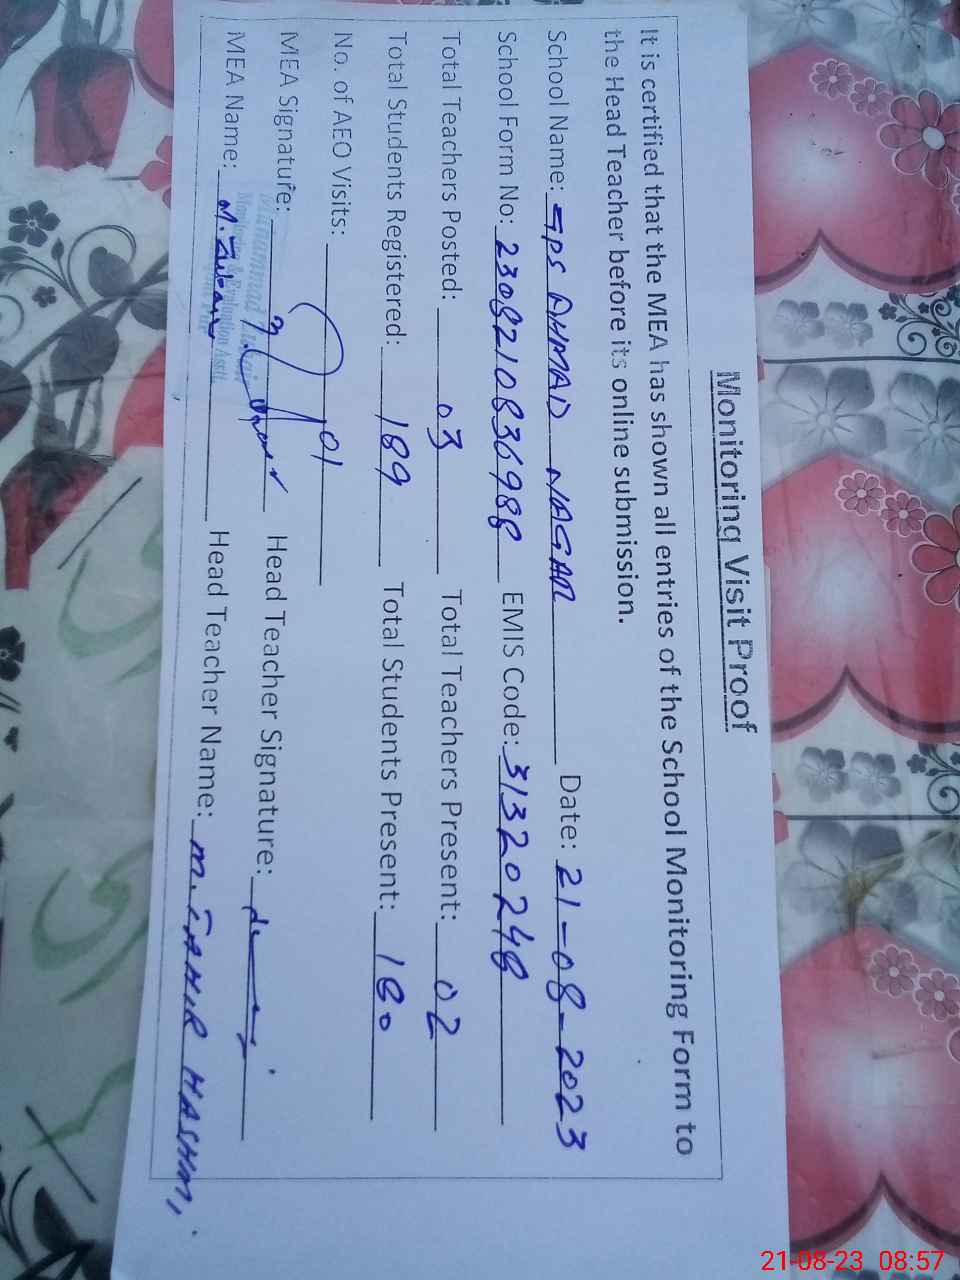 Monitoring Visit Proof
It is certified that the MEA has shown all entries of the School Monitoring Form to
the Head Teacher before its online submission.
School Name: GPS AHMAD NAGAR Date: 21-08-2023
School Form No: 2308210836988 EMIS Code: 31320248
Total Teachers Posted: 03 Total Teachers Present: 02
Total Students Registered: 189 Total Students Present: 180
No. of AEO Visits: 01
MEA Signature: Head Teacher Signature:
MEA Name: M. Head Teacher Name: M. TAHIR HASHMI
21-08-23 08:57